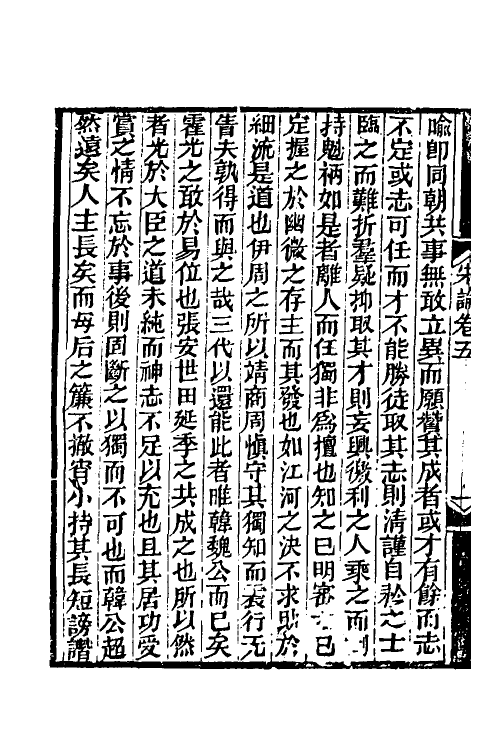 宋論卷五
喻卽同朝共事無敢立異而願贊其成者或才有餘而志
不定或志可任而才不能勝徒取其志則清謹自矜之士
臨之而難折羣疑抑取其才則妄興徼利之人乘之而
持魁柄如是者離人而任獨非爲擅也知之已明審已
定握之於幽微之存主而其發也如江河之決不求助於
細流是道也伊周之所以靖商周愼守其獨知而衷行无
咎夫孰得而與之哉三代以還能此者唯韓魏公而已矣
霍光之敢於易位也張安世田延季之共成之也所以然
者光於大臣之道未純而神志不足以充也且其居功受
賞之情不忘於事後則固斷之以獨而不可也而韓公超
然遠矣人主長矣而母后之簾不撤宵小持其長短謗譖